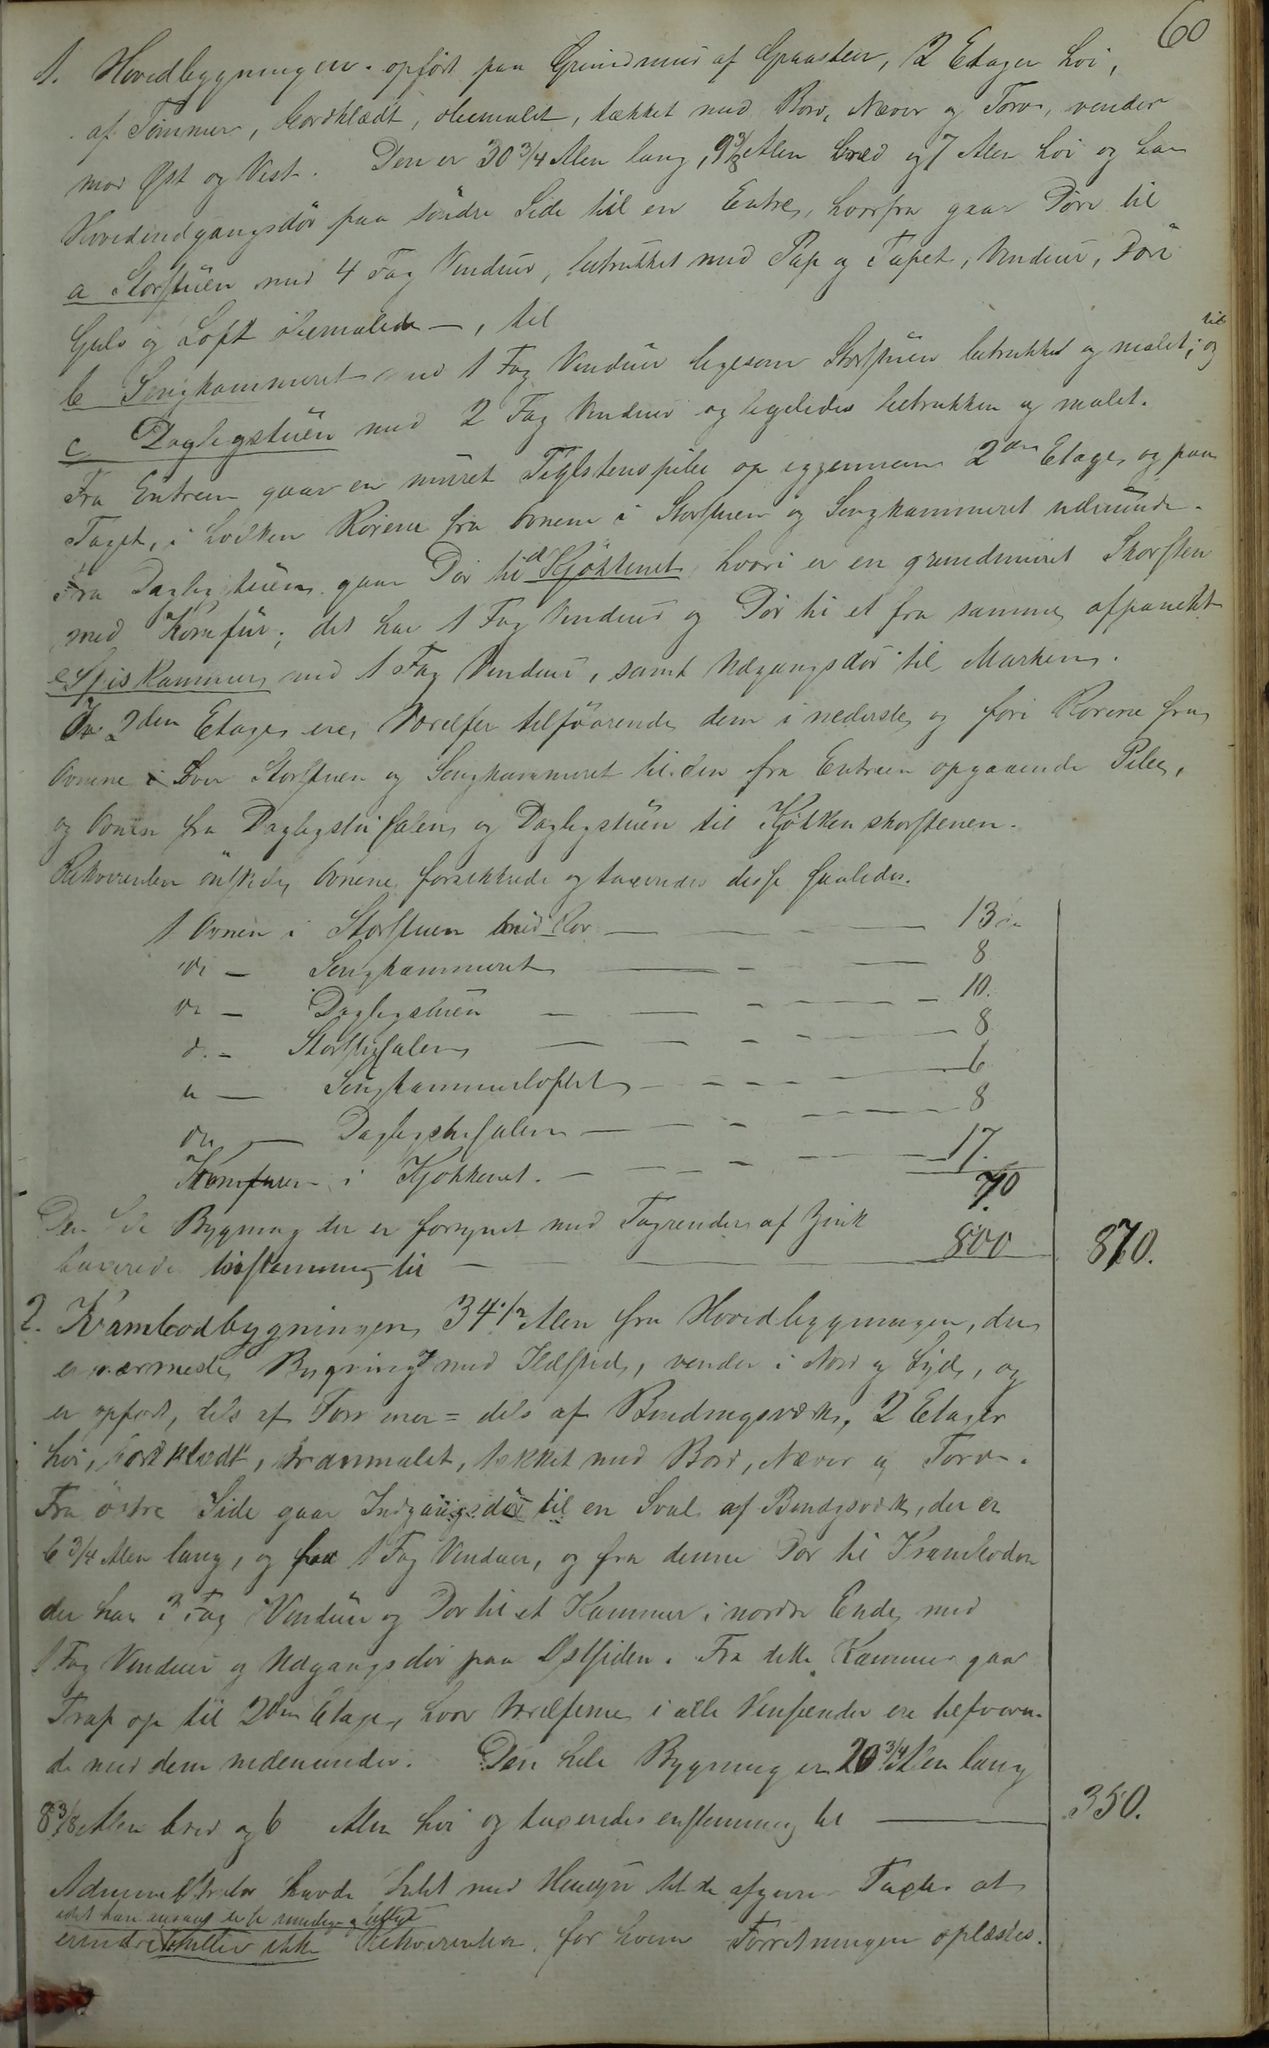 60
1. Hovedbygningen opført paa Grundmuur af Graasten, 2 Etager høi,
af Tømmer, bordklædt, oliemalet, tækket med Bord, Næver og Torv, vender
mod Øst og Vest. Den er 30 3/4 Alen lang, 9 3/8 Alen bred og 7 Alen høi og har
Hovedindgangsdør paa søndre Side til en Entre, hvorfra gaar Døre til
a Storstuen med 4 Fag Vinduer, betrukket med Pap og Tapet, Vinduer, Døre
Gulv og Loft oliemalede —, til
b Sengkammeret med 1 Fag Vinduer ligesom Storstuen betrukket og malet; og til
c Dagligstuen med 2 Fag Vinduer og ligeledes betrukken og malet.
Fra Entreen gaar en muret Teglstenspibe op igjennem 2den Etage og paa
Taget, i hvilken Rørene fra Ovnene i Storstuen og Sengkammeret udmunde.
Fra Dagligstuen gaar Dør til d Kjøkkenet, hvori er en grundmuret Skorsten
med Komfur; det har 1 Fag Vinduer og Dør til et fra samme afpanelt
e Spiskammer med 1 Fag Vinduer, samt Udgangsdør til Marken.
I 2den Etage ere Værelser tilsvarende dem i nederste og føre Rørene fra
Ovnene i Over Storstuen og Sengkammeret til den fra Entreen opgaaende Pibe,
og Ovnen fra Dagligstuesalen og Dagligstuen til Kjøkkenskorstenen.
Rekvirenten ønskede Ovnene forsikkrede og taxeredes disse saaledes.
1 Ovnen i Storstuen med Rør — 13
do — Sengkammeret — 8
do — Dagligstuen — 10.
do — Storstuesalen — 8
do — Sengkammerloftet — 6
do — Dagligstuesalen — 8
Komfuren i Kjøkkenet. — 17.
70
Den hele Bygning der er forsynet med Tagrender af Zink
taxerede enstemmig til — 800 870.
2. Krambodbygningen, 34 1/2 Alen fra Hovedbygningen, der
er nærmeste Bygning med Ildsted, vender i Nord og Syd, og
er opført, dels af Tømmer = dels af Bindingsværk, 2 Etager
høi, bordklædt, tranmalet, tækket med Bord, Næver og Torv.
Fra østre Side gaar Indgangsdør til en Sval af Bindingsværk, der er
6 3/4 Alen lang, og har 1 Fag Vinduer, og fra denne Dør til Kramboden
der har 3 Fag Vinduer og Dør til et Kammer i nordre Ende med
1 Fag Vinduer og Udgangsdør paa Østsiden. Fra dette Kammer gaar
Trap op til 2den Etage, hvor Værelserne i alle Henseender ere tilsvaren-
de med dem nedenunder. Den hele Bygning er 20 3/4 Alen lang
8 3/8 Alen bred og 6 Alen høi og taxeredes enstemmig til — 350.
Administrator havde Intet med Hensyn til de afgivne Taxter at
erindre heller ikke Rekvirenten, for hvem Forretningen oplæstes.